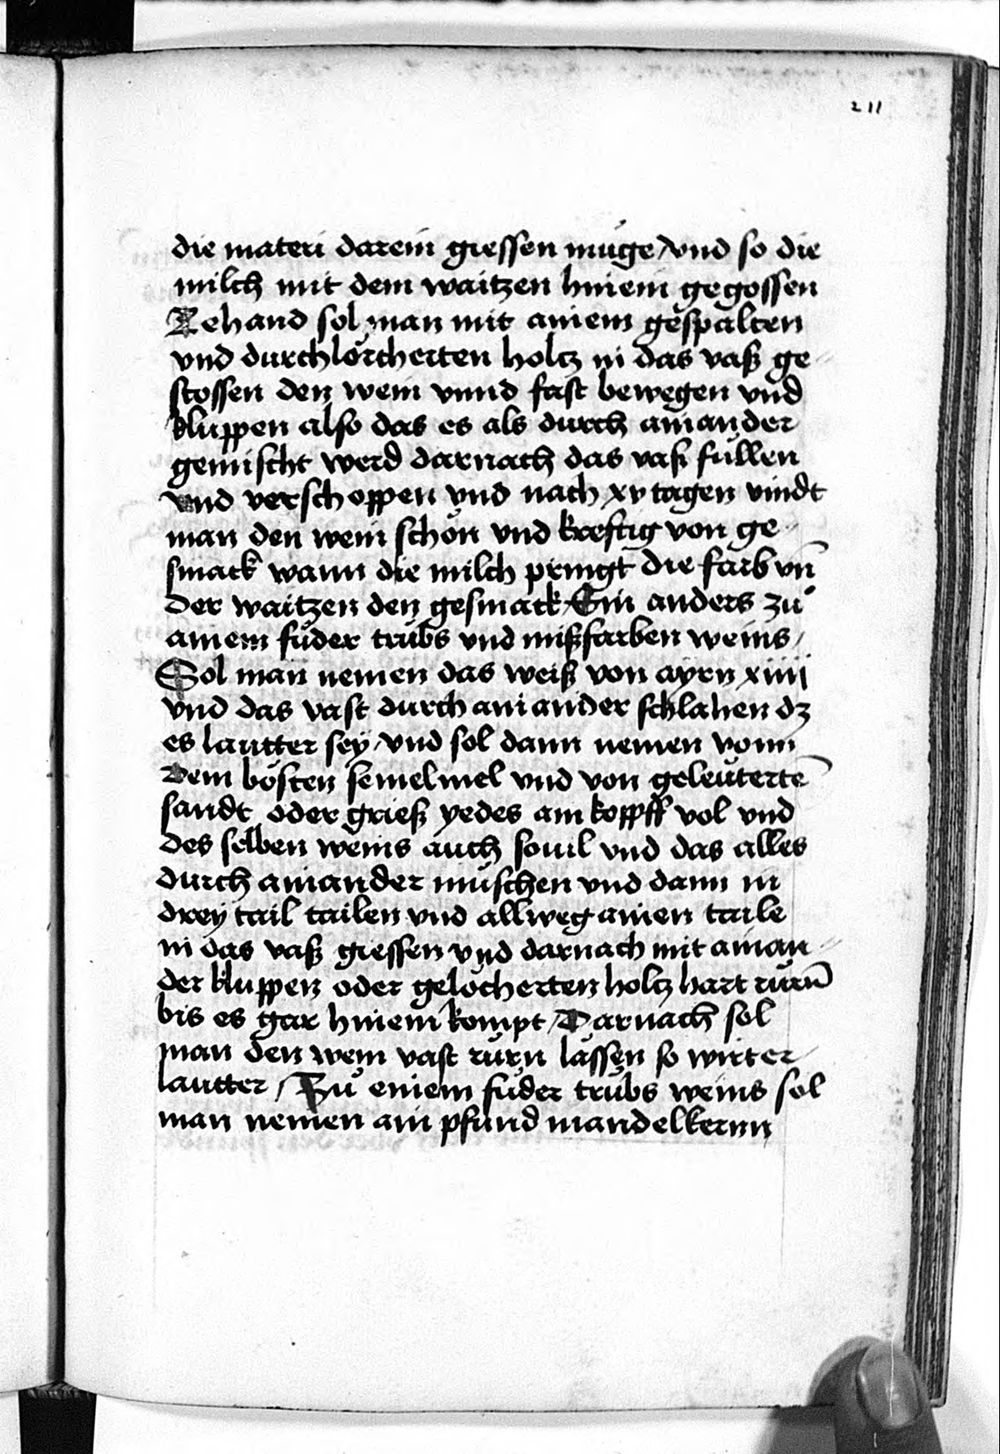 211
die materi darein giessen müge / vnd so die
milch mit dem waitzen hinein gegossen
Zehand sol man mit ainem gespalten
vnd durchlörcherten holtz in das vaß ge-
stossen den wein vnnd fast bewegen vnd
kluppen also das es als durch ainander
gemischt werd darnach das vaß füllen
vnd verschoppen vnd nach xv tagen vindt
man den wein schön vnd kreftig von ge-
smack wann die milch pringt die farb vn̄
der waitzen den gesmack Ein anders zů
ainem fůder trübs vnd mißfarben weins /
Sol man nemen das weiß von ayrn xiiij
vnd das vast durch ainander schlahen dz
es lautter sey / vnd sol dann nemen vonn
dem bösten semelmel vnd von geleüterte̅
sandt oder grieß yedes ain koppff vol vnd
des selben weins auch souil vnd das alles
durch ainander müschen vnd dann in
drey tail tailen vnd allweg ainen taile
in das vaß giessen vnd darnach mit ainan-
der kluppen oder gelöcherten holtz hart rürn̄
bis es gar hinein kompt / Darnach sol
man den wein vast rürn lassen so wirt er
lautter / Zů einem fůder trübs weins sol
man nemen ain pfund mandelkernn